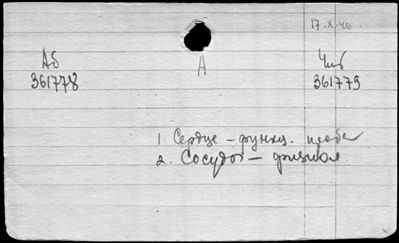 17.X.46.
Аб
361778
А
Чит
361779
1. Сердце – функц. проба
2. Сосуды – физиол